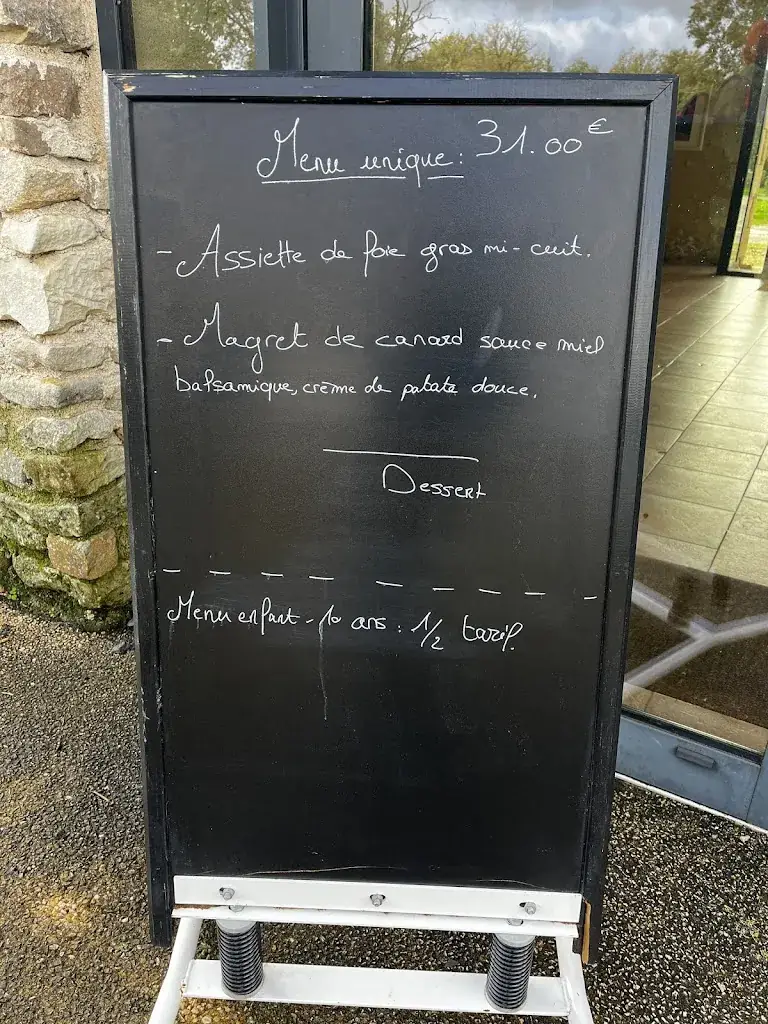 Menu unique: 31.00€
- Assiette de foie gras mi-cuit.
- Magret de canard sauce miel
balsamique, crème de patate douce.
Dessert
Menu enfant - 10 ans : 1/2 tarif.